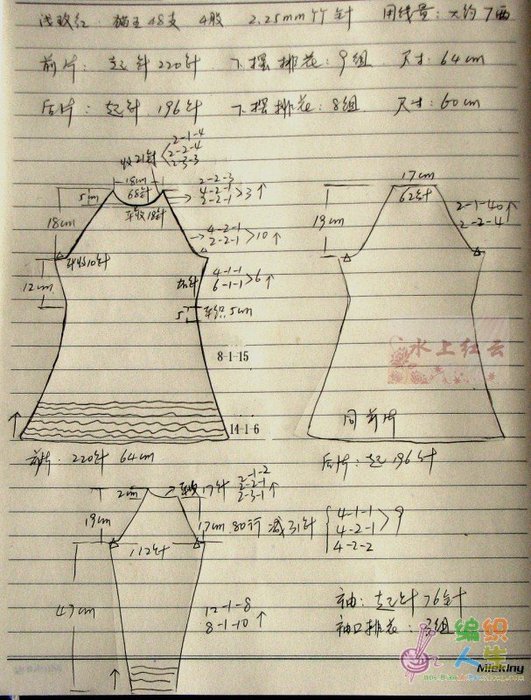 浅玫红: 猫王48支 4股 2.25mm竹针 用线量: 大约7两
前片: 起针220针 下摆排花: 9组 尺寸: 64cm
后片: 起针196针 下摆排花: 8组 尺寸: 60cm
收21针
2-1-4
2-2-4
2-3-3
18cm
68针
平收18针
5cm
2-2-3
4-2-1
2-2-1
>3↑
18cm
4-2-1
2-2-1
>10↑
平收10针
12cm
加针
4-1-1
6-1-1
>6↑
5
平织5cm
8-1-15
14-1-6
前片: 220针 64cm
17cm
62针
19cm
2-1-40↑
2-2-4
水上红云
同前片
后片: 起196针
2cm
平收17针
2-1-2
2-2-1
2-3-1
↑
19cm
17cm 80行 减31针
4-1-1
4-2-1
>9
4-2-2
112针
47cm
12-1-8
8-1-10
↑
袖: 起针76针
袖口排花: 3组
编织人生
Miekiny